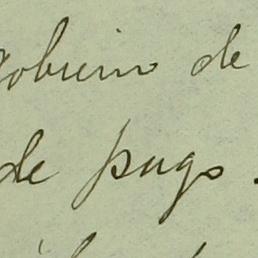 Gobierno de
de pago.